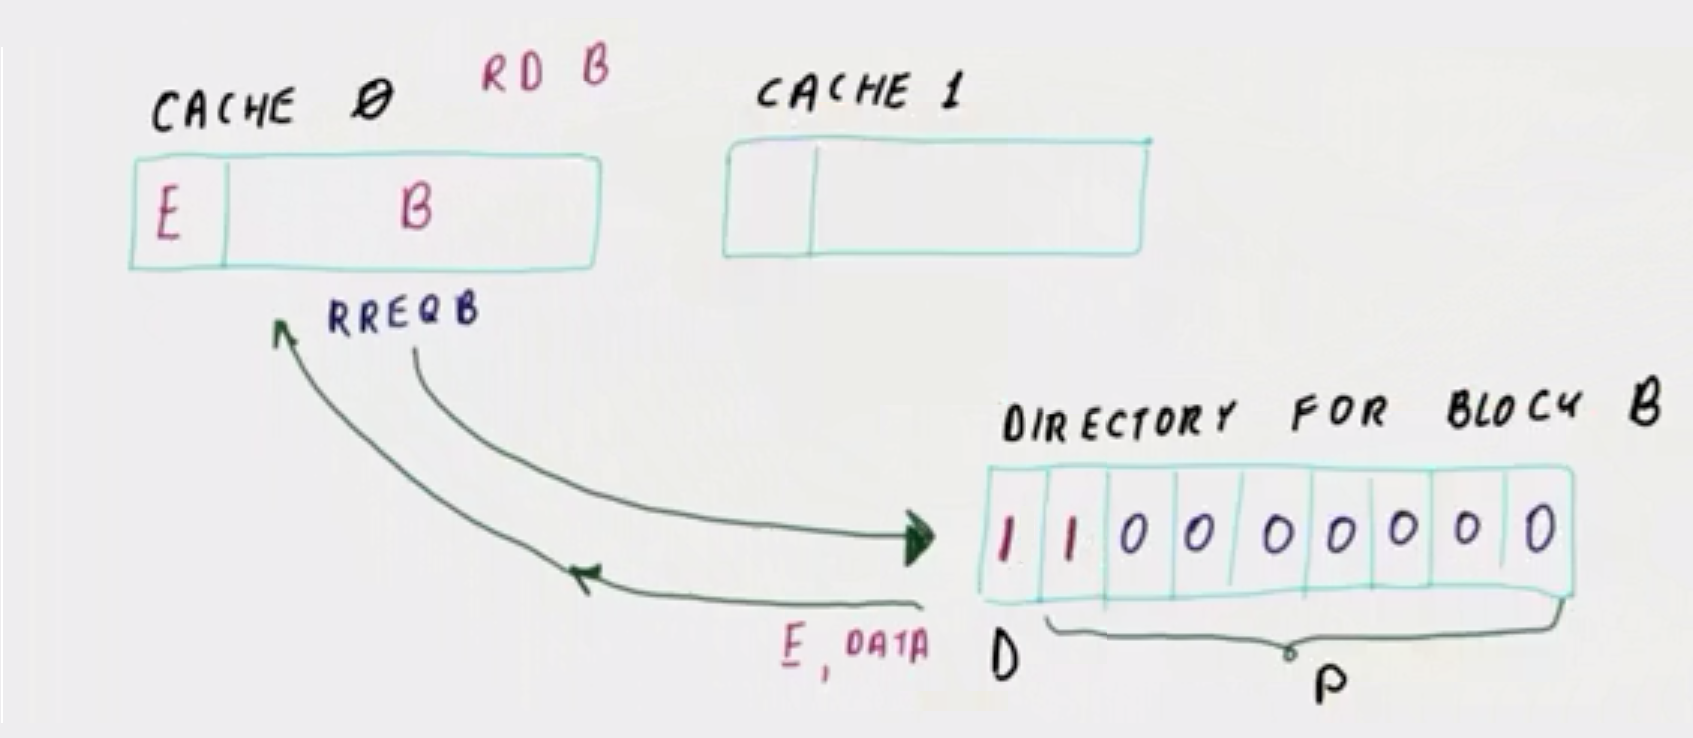 CACHE 0 RD B
CACHE 1
E B
RREQ B
DIRECTORY FOR BLOCK B
1 1 0 0 0 0 0 0 0
E, DATA
D
P